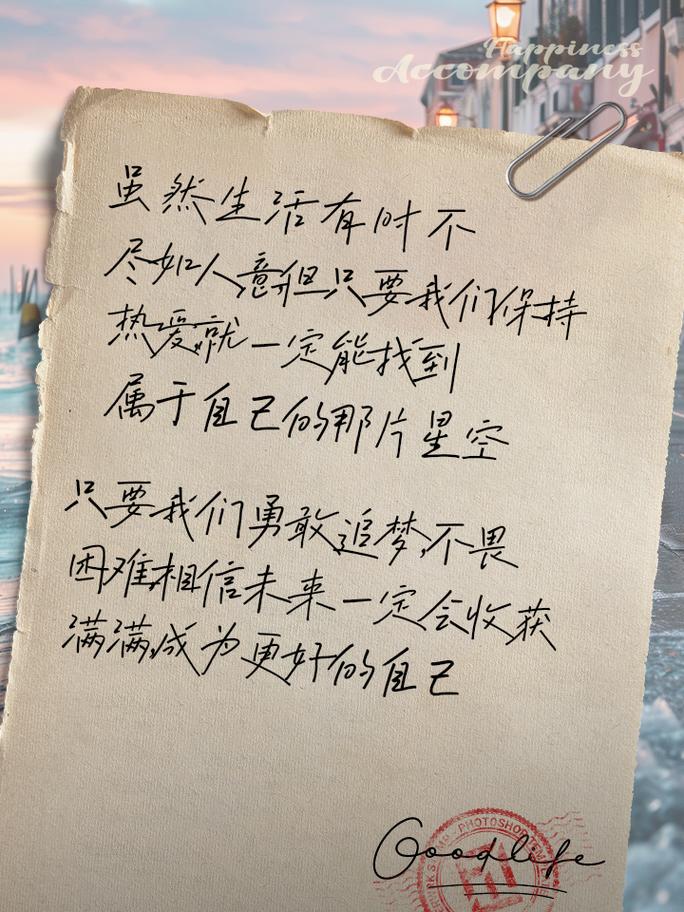 Happiness
Accompany
虽然生活有时不
尽如人意但只要我们保持
热爱,就一定能找到
属于自己的那片星空
只要我们勇敢追梦,不畏
困难,相信未来一定会收获
满满,成为更好的自己
Goodlife
PHOTOSHOP